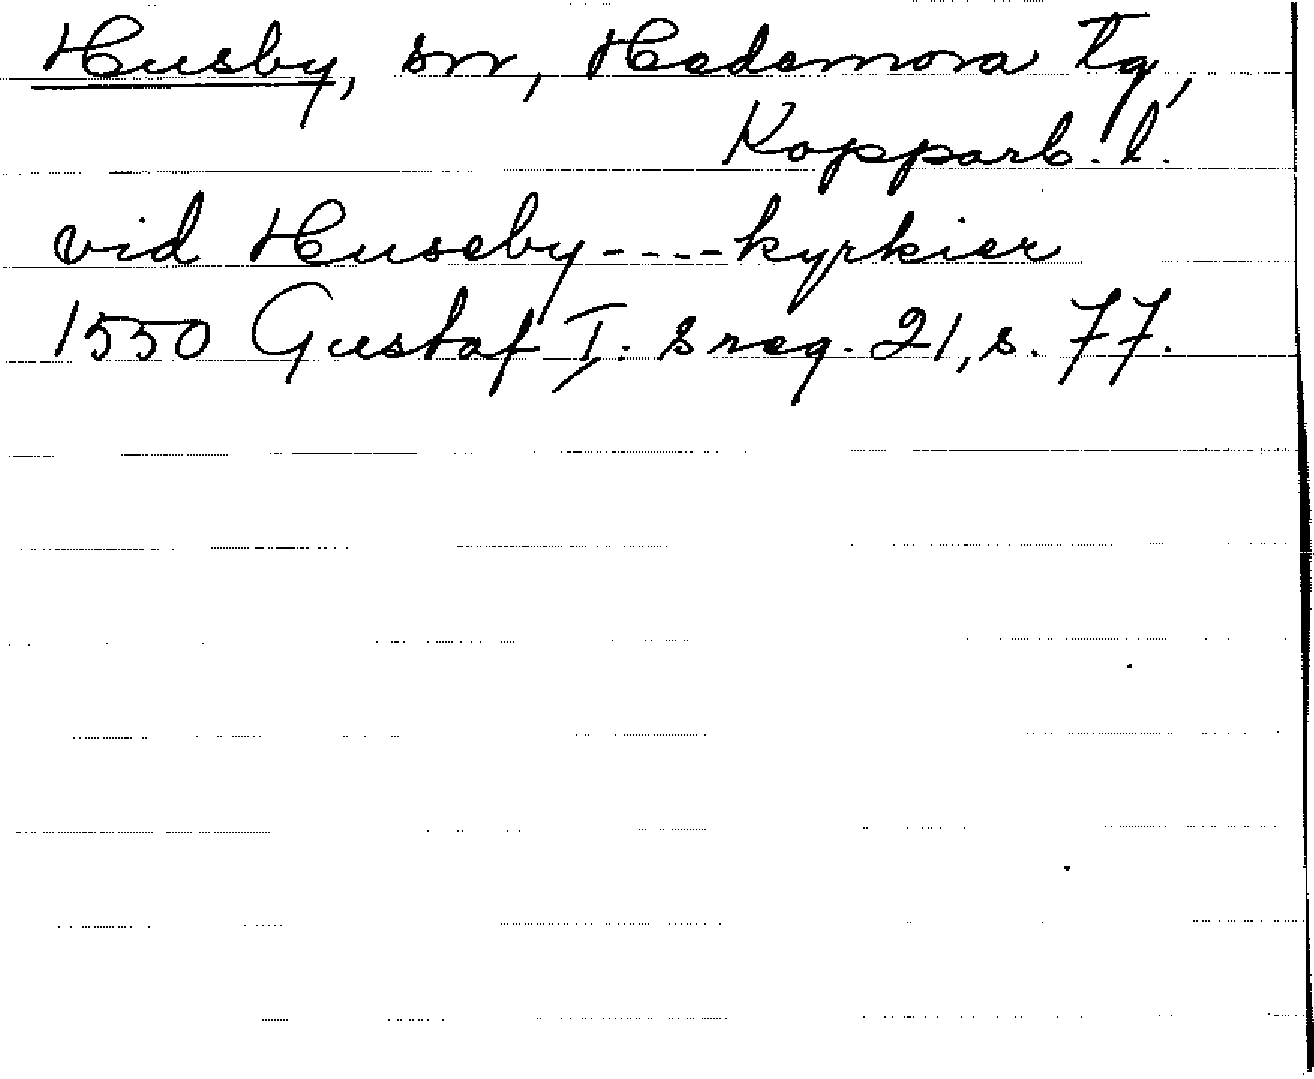 Husby, sn, Hedemora tg,
Kopparb. l.
vid Huseby ---- kyrkier
1550 Gustaf I:s reg. 21, s. 77.